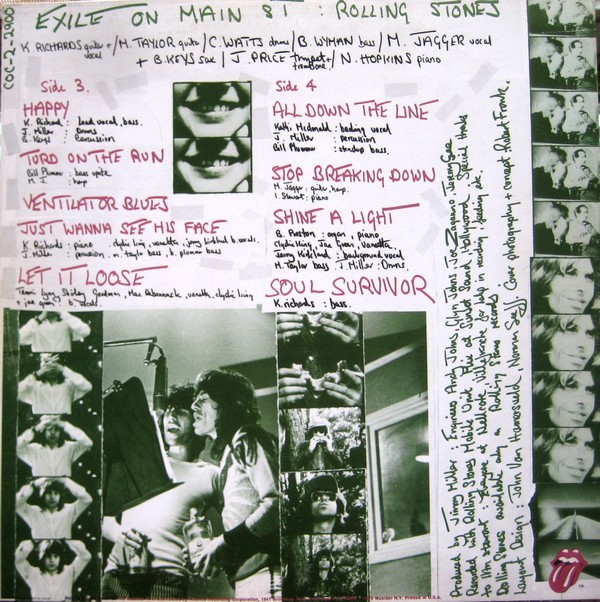 COC-2-2900
EXILE ON MAIN ST : ROLLING STONES
K. RICHARDS guitar + vocal / M. TAYLOR guita / C. WATTS drums / B. WYMAN bass / M. JAGGER vocal
+ B. KEYS sax / J. PRICE trumpet + trombone / N. HOPKINS piano
Side 3.
HAPPY
K. Richard : lead vocal, bass.
J. Miller : Drums
B. Keys : Percussion
TURD ON THE RUN
Bill Plummer : bass upite
M. J. : harp
VENTILATOR BLUES
JUST WANNA SEE HIS FACE
K. Richards : piano. clydie king, vanetta, jerry kirkland b. vocals.
J. Miller : percussion, m. taylor bass, b. plummer bass
LET IT LOOSE
Tammi Lynn, Shirley Goodman, Mac Rebennack, vanetta, clydie king
+ joe green : b. vocals
Side 4
ALL DOWN THE LINE
Kathi Mcdonald : backing vocal
J. Miller : percussion
Bill Plummer : standup bass.
STOP BREAKING DOWN
M. Jagger : guitar, harp.
I. Stewart : piano
SHINE A LIGHT
B. Preston : organ, piano
Clydie King, Joe Green, Vanetta,
Jerry Kirkland : background vocal
M. Taylor bass J. Miller : Drums.
SOUL SURVIVOR
K. richards : bass.
Produced by Jimmy Miller : Engineers Andy Johns, Glyn Johns, Joe Zaganno, Jeremy Gee
Recorded with Rolling Stones Mobile Unit. Mixed at Sunset Sound, Hollywood. Special thanks
to Ian Stewart : Everyone at Nellcote Villefranche for help in recording, feeding etc.
Rolling Stones available only on Rolling Stones records
Layout Design : John Van Hamersveld, Norman Seeff : Cover photography + concept Robert Frank.